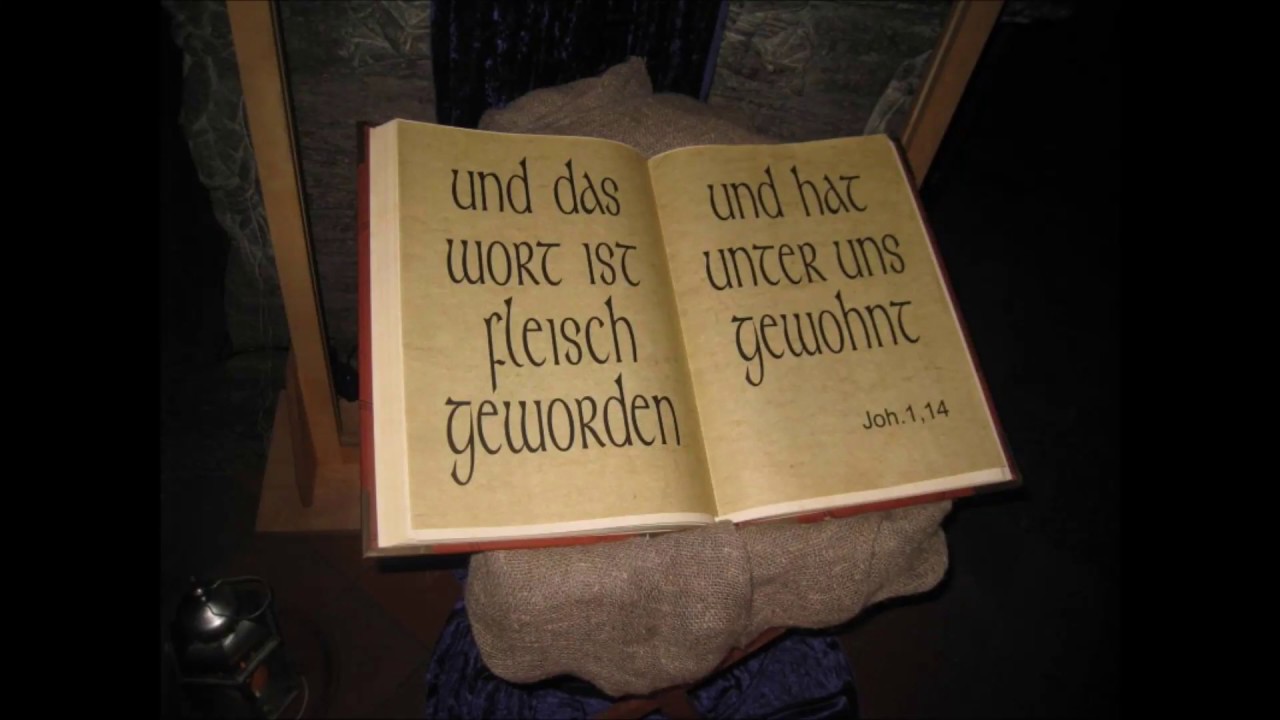 und das
wort ist
fleisch
geworden
und hat
unter uns
gewohnt
Joh.1,14